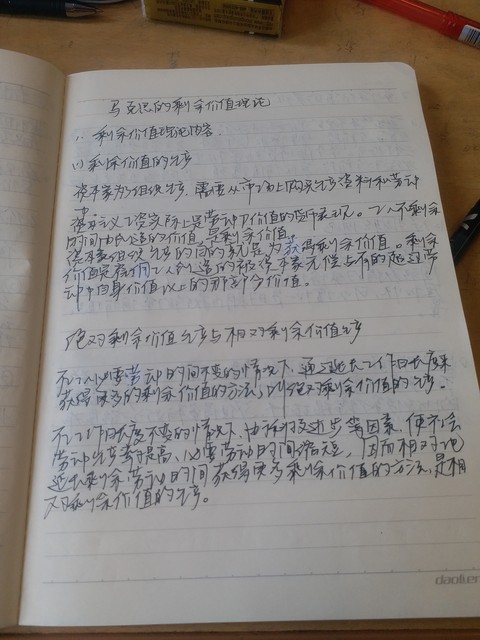 马克思的剩余价值理论
1. 剩余价值理论内容
(1) 剩余价值的生产
资本家为了组织生产，需要从市场上购买生产资料和劳动
力。
资本主义工资实际上是劳动力价值的货币表现。工人在剩余
时间内创造的价值，是剩余价值。
资本家组织生产的目的就是为获得剩余价值。剩余
价值是雇佣工人创造的被资本家无偿占有的超过劳
动力自身价值以上的那部分价值。
绝对剩余价值生产与相对剩余价值生产
在工人必要劳动时间不变的情况下，通过延长工作日长度来
获得更多的剩余价值的方法，叫绝对剩余价值的生产。
在工作日长度不变的情况下，由于科技进步等因素，使社会
劳动生产率提高，必要劳动时间缩短，因而相对地
延长剩余劳动时间获得更多剩余价值的方法，是相
对剩余价值的生产。